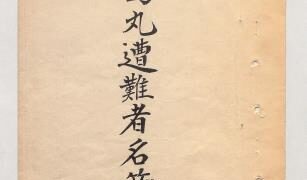 丸遭難者名